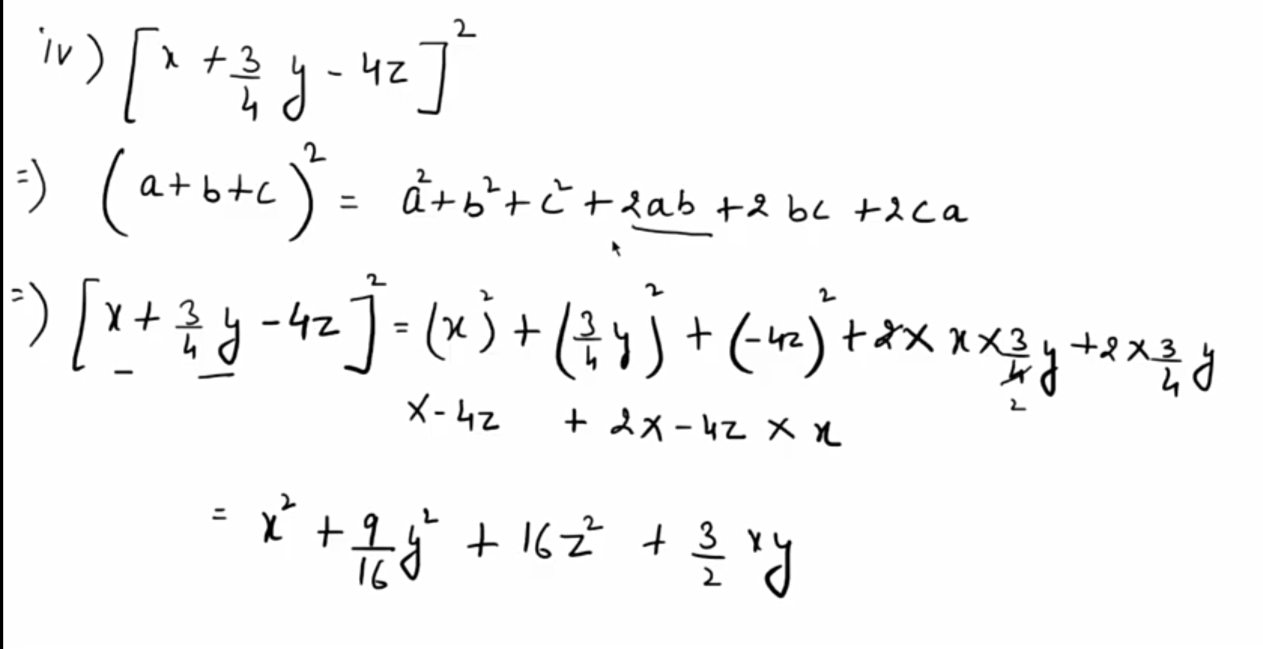 iv) [x + 3/4 y - 4z]²
=) (a+b+c)² = a²+b²+c²+2ab+2bc+2ca
=) [x + 3/4 y - 4z]² = (x)² + (3/4 y)² + (-4z)² + 2 × x × 3/4 y + 2 × 3/4 y
2
× - 4z + 2 × - 4z × x
= x² + 9/16 y² + 16z² + 3/2 xy